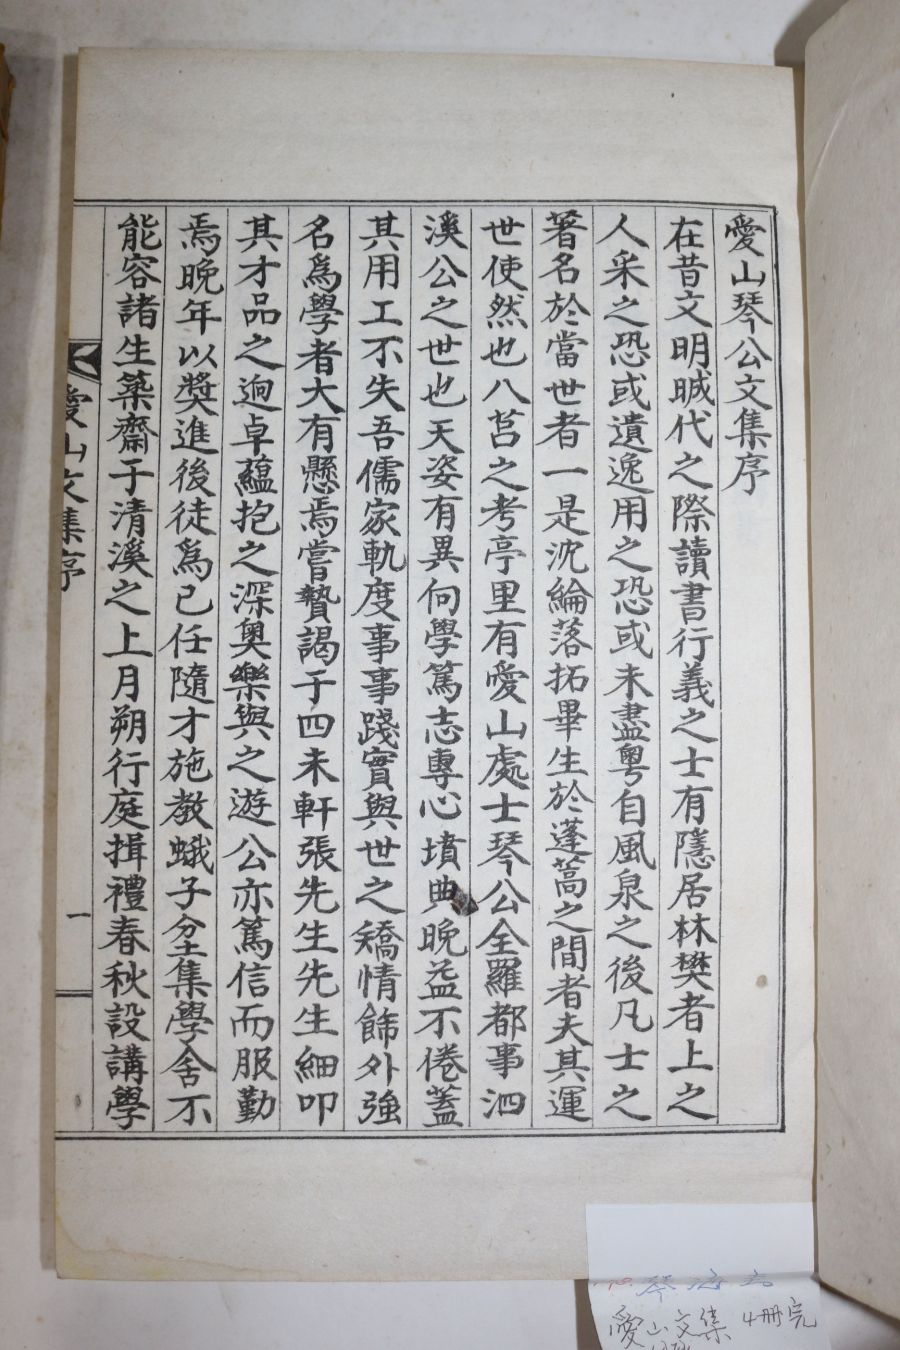 愛山琴公文集序
在昔文明晠代之際讀書行義之士有隱居林樊者上之
人采之恐或遺逸用之恐或未盡粤自風泉之後凡士之
著名於當世者一是沈綸落拓畢生於蓬蒿之間者夫其運
世使然也八莒之考亭里有愛山處士琴公全羅都事泗
溪公之世也天姿有異向學篤志專心墳典晚益不倦蓋
其用工不失吾儒家軌度事事踐實與世之矯情餙外強
名爲學者大有懸焉嘗贄謁于四未軒張先生先生細叩
其才品之逈卓蘊抱之深奥樂與之遊公亦篤信而服勤
焉晩年以奬進後徒爲己任隨才施教蛾子坌集學舍不
能容諸生築齋于清溪之上月朔行庭揖禮春秋設講學
愛山文集序
一
琴
愛山文集 4冊完